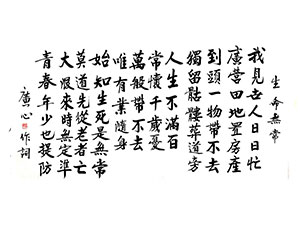 生命無常
我見世人日日忙
廣營田地置房產
到頭一物帶不去
獨留骷髏葬道旁
人生不滿百
常懷千歲憂
萬般帶不去
唯有業隨身
始知生死是無常
莫道先從老者亡
大限來時無定準
青春年少也提防
廣心作詞